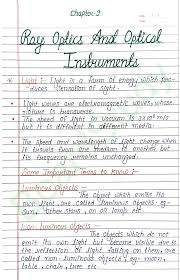 Chapter-9
Ray Optics And Optical
Instruments
* Light :- Light is a form of energy, which pro-
duces sensation of sight.
• Light waves are electromagnetic waves, whose
nature is transverse.
• The speed of light in vacuum is 3x10⁸ m/s
but it is different in different media.
• The speed and wavelength of light change when
it travels from one medium to another but
its frequency remains unchanged.
Some Important Terms to Know :-
Luminous Objects :-
The object which emits its
own light, are called luminous objects eg-
Sun, other stars, an oil lamp etc.
Non-luminous Objects :-
The objects which do not
emit its own light but become visible due to
the reflection of light falling on them, are
called non-luminous objects eg- moon,
table, chair, tree etc.